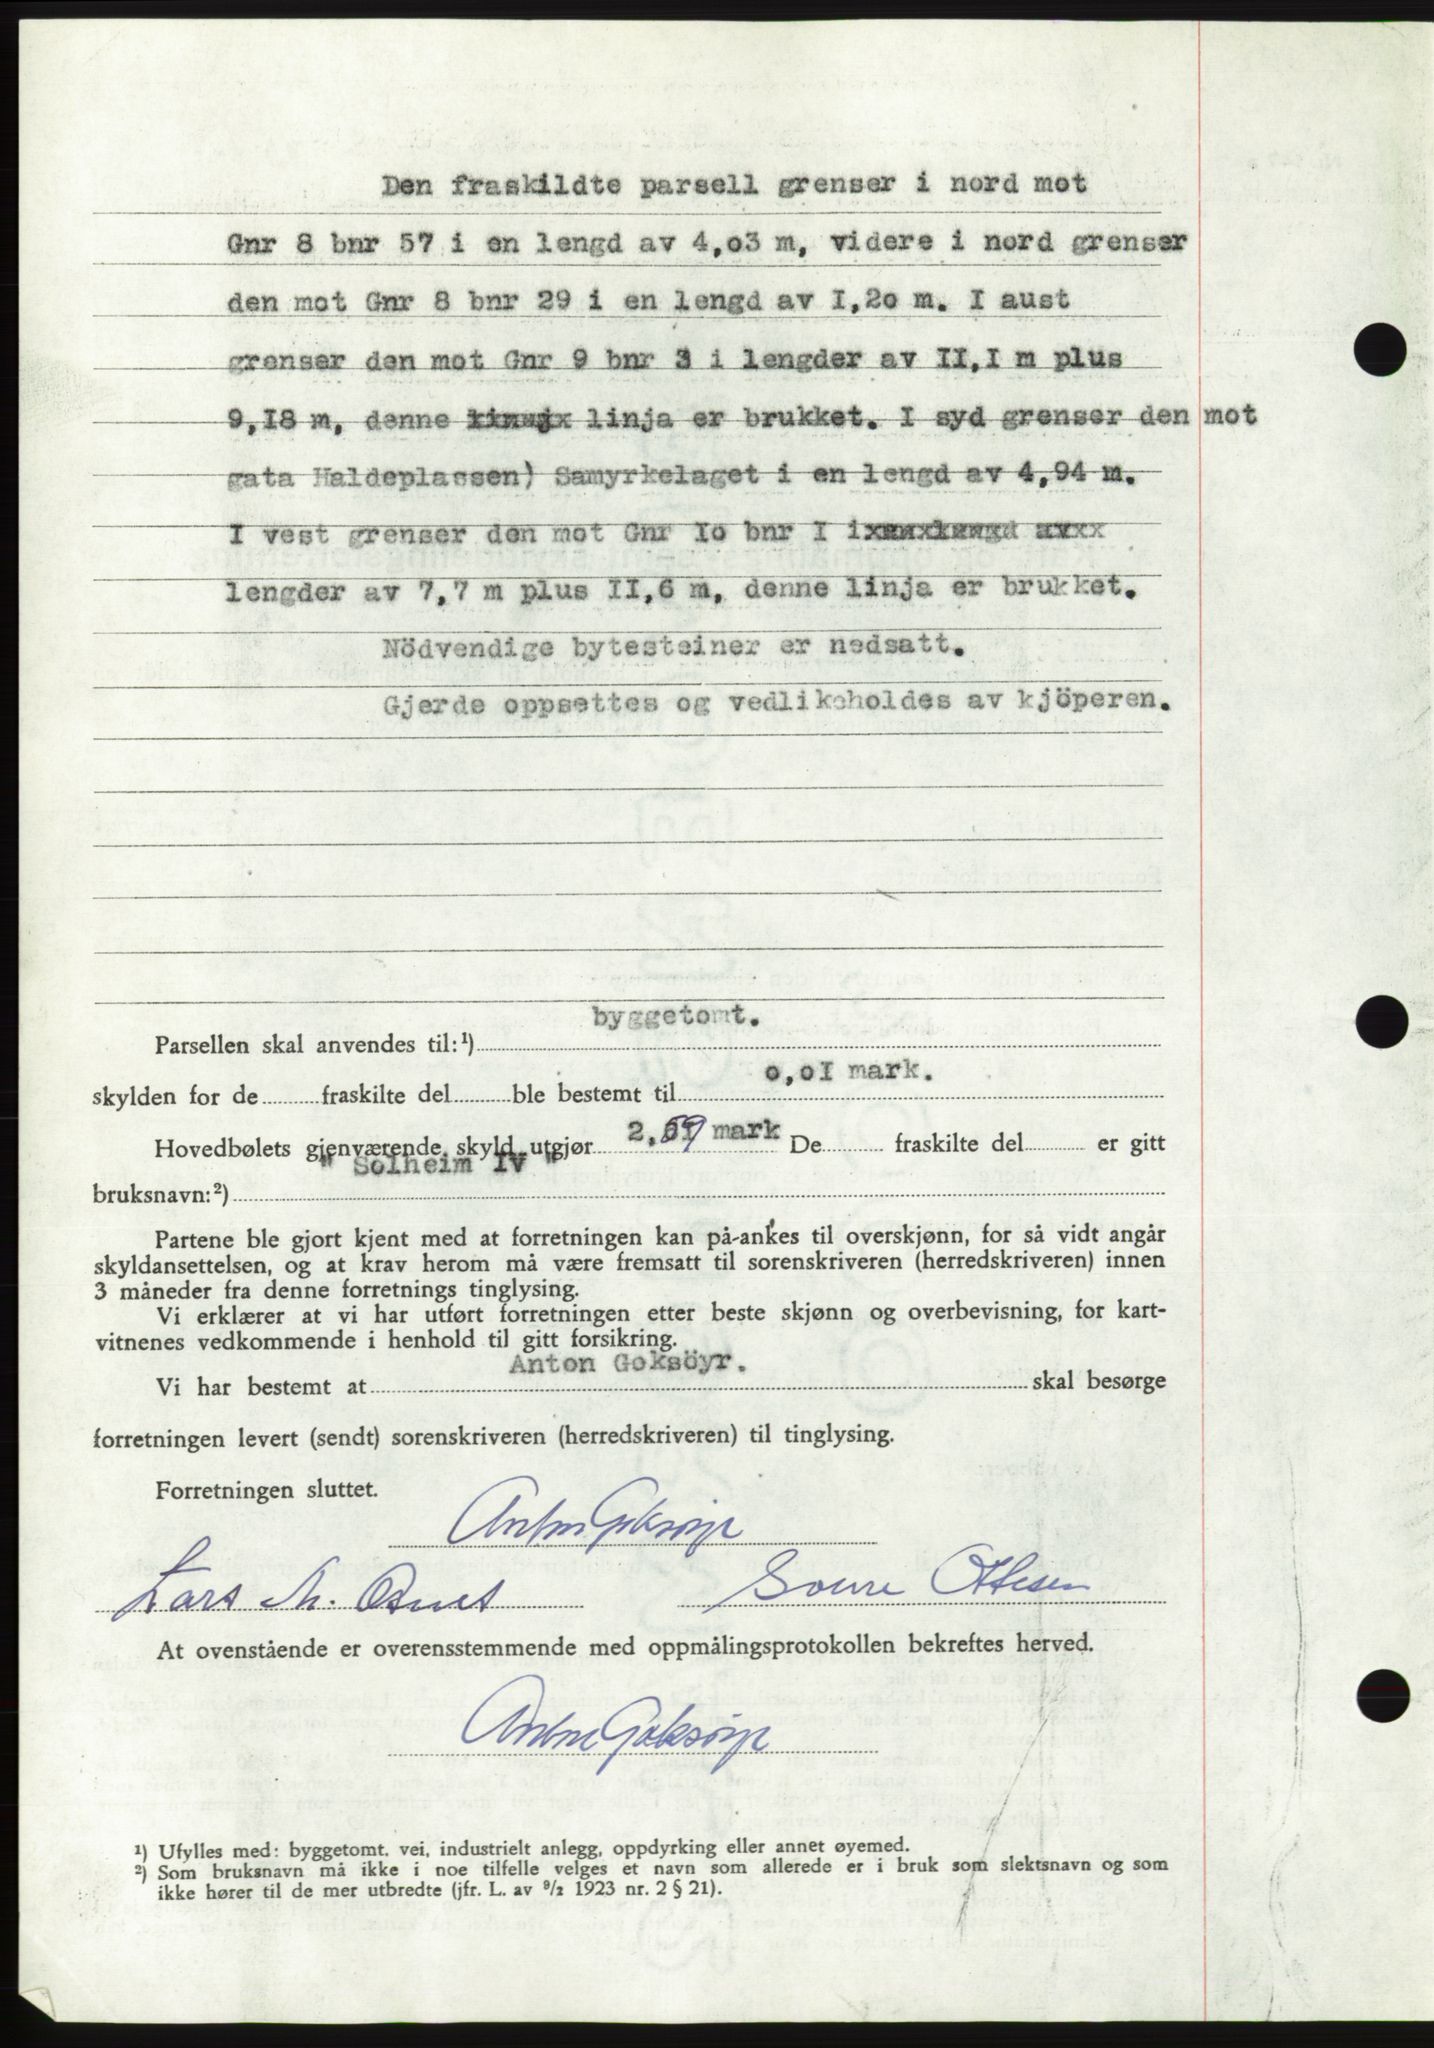 Den fraskildte parsell grenser i nord mot
Gnr 8 bnr 57 i en lengd av 4,o3 m, videre i nord grenser
den mot Gnr 8 bnr 29 i en lengd av I,2o m. I aust
grenser den mot Gnr 9 bnr 3 i lengder av II,I m plus
9,I8 m, denne linja er brukket. I syd grenser den mot
gata Haldeplassen) Samyrkelaget i en lengd av 4,94 m.
I vest grenser den mot Gnr Io bnr I i
lengder av 7,7 m plus II,6 m, denne linja er brukket.
Nödvendige bytesteiner er nedsatt.
Gjerde oppsettes og vedlikeholdes av kjöperen.
byggetomt.
Parsellen skal anvendes til:¹)
o,oI mark.
skylden for de fraskilte del ble bestemt til
Hovedbølets gjenværende skyld utgjør 2,59 mark De fraskilte del er gitt
" Solheim IV "
bruksnavn:²)
Partene ble gjort kjent med at forretningen kan på-ankes til overskjønn, for så vidt angår
skyldansettelsen, og at krav herom må være fremsatt til sorenskriveren (herredskriveren) innen
3 måneder fra denne forretnings tinglysing.
Vi erklærer at vi har utført forretningen etter beste skjønn og overbevisning, for kart-
vitnenes vedkommende i henhold til gitt forsikring.
Anton Goksöyr.
Vi har bestemt at skal besørge
forretningen levert (sendt) sorenskriveren (herredskriveren) til tinglysing.
Forretningen sluttet.
Anton Goksøyr
Lars M. Osnes Sverre Ottesen
At ovenstående er overensstemmende med oppmålingsprotokollen bekreftes herved.
Anton Goksøyr
¹) Ufylles med: byggetomt. vei, industrielt anlegg, oppdyrking eller annet øyemed.
²) Som bruksnavn må ikke i noe tilfelle velges et navn som allerede er i bruk som slektsnavn og som
ikke hører til de mer utbredte (jfr. L. av ⁹/₂ 1923 nr. 2 § 21).